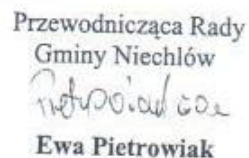 Przewodnicząca Rady
Gminy Niechlów
Ewa Pietrowiak